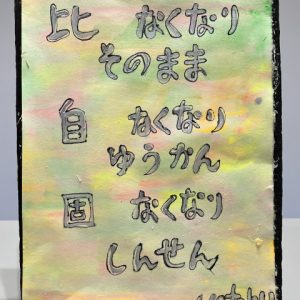 比 なくなり
そのまま
自 なくなり
ゆうかん
固 なくなり
しんせん